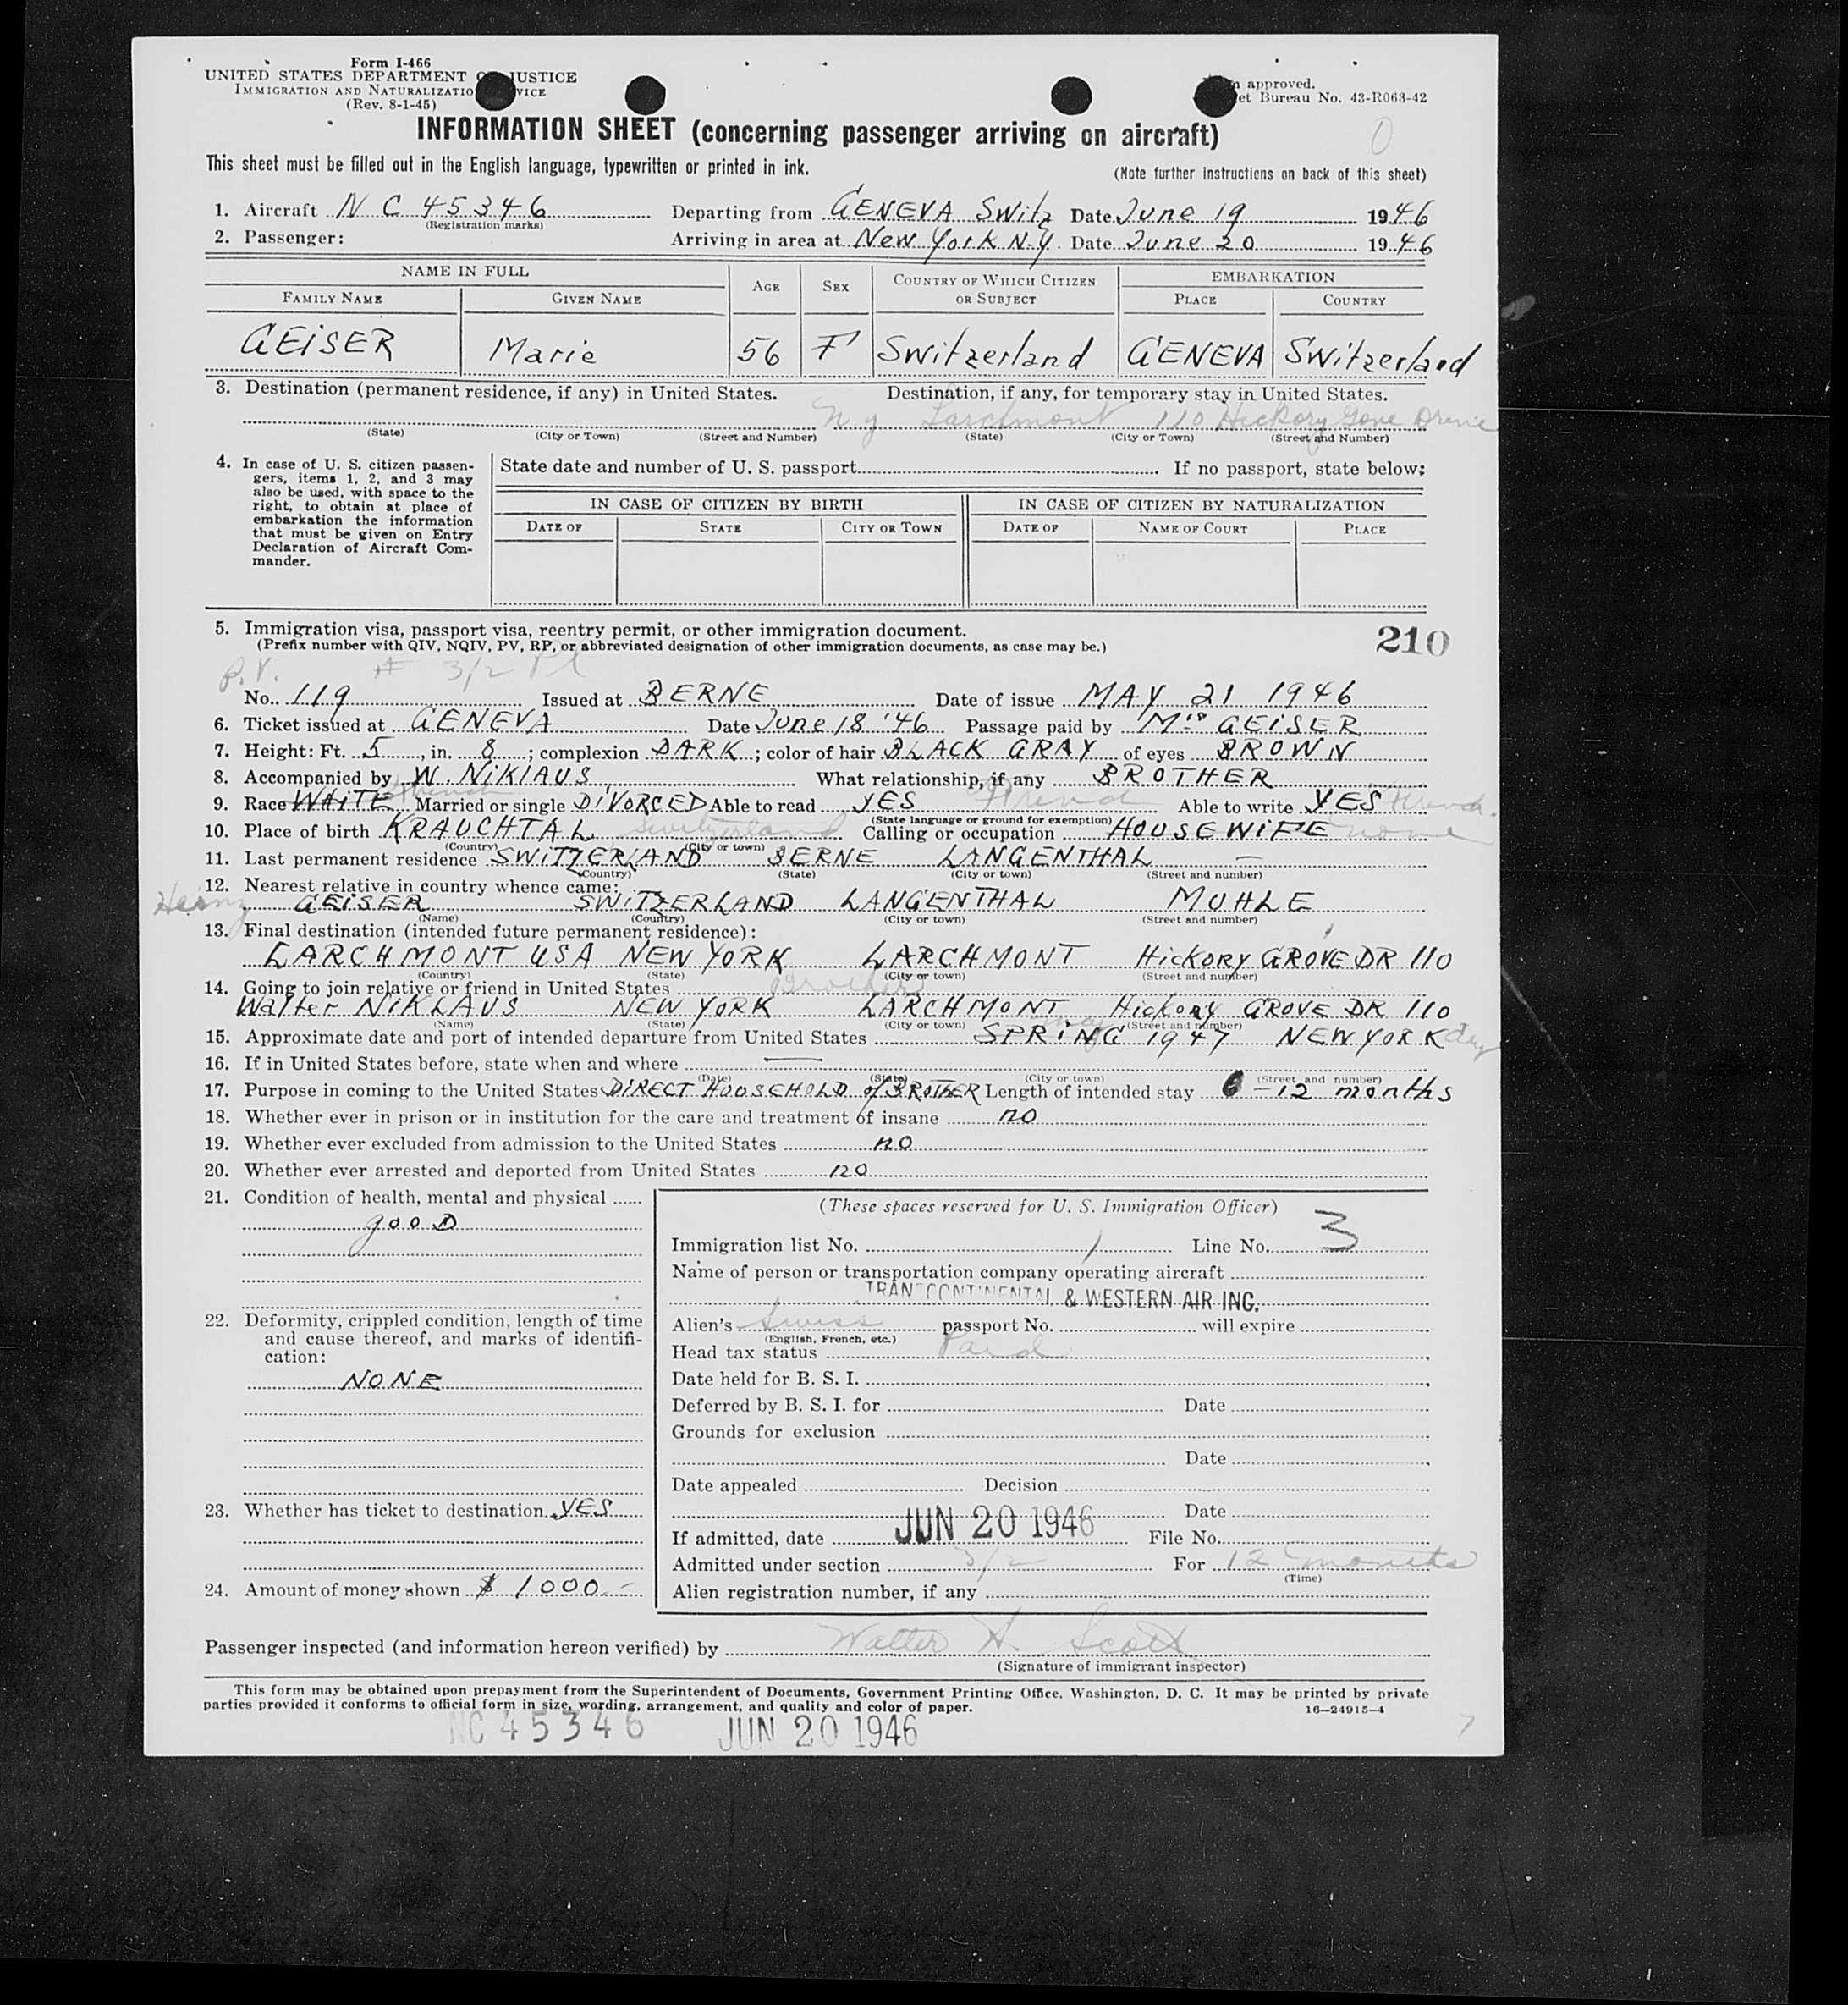 Form I-466
UNITED STATES DEPARTMENT OF JUSTICE
IMMIGRATION AND NATURALIZATION SERVICE
(Rev. 8-1-45)
approved.
et Bureau No. 43-R063-42
INFORMATION SHEET (concerning passenger arriving on aircraft)
0
This sheet must be filled out in the English language, typewritten or printed in ink.
(Note further instructions on back of this sheet)
1. Aircraft N C 45346 Departing from GENEVA Switz Date June 19 1946
(Registration marks)
2. Passenger: Arriving in area at New York N.Y. Date June 20 1946
NAME IN FULL
AGE SEX COUNTRY OF WHICH CITIZEN OR SUBJECT EMBARKATION
FAMILY NAME GIVEN NAME PLACE COUNTRY
GEISER Marie 56 F Switzerland GENEVA Switzerland
3. Destination (permanent residence, if any) in United States. Destination, if any, for temporary stay in United States.
N.Y Larchmont 110 Hickory Gove Drive
(State) (City or Town) (Street and Number) (State) (City or Town) (Street and Number)
4. In case of U. S. citizen passen-
gers, items 1, 2, and 3 may
also be used, with space to the
right, to obtain at place of
embarkation the information
that must be given on Entry
Declaration of Aircraft Com-
mander.
State date and number of U. S. passport If no passport, state below:
IN CASE OF CITIZEN BY BIRTH IN CASE OF CITIZEN BY NATURALIZATION
DATE OF STATE CITY OR TOWN DATE OF NAME OF COURT PLACE
5. Immigration visa, passport visa, reentry permit, or other immigration document.
(Prefix number with QIV, NQIV, PV, RP, or abbreviated designation of other immigration documents, as case may be.)
210
P.V. # 3/2
No. 119 Issued at BERNE Date of issue MAY 21 1946
6. Ticket issued at GENEVA Date June 18 '46 Passage paid by Mrs GEISER
7. Height: Ft. 5, in. 8; complexion DARK; color of hair BLACK GRAY of eyes BROWN
8. Accompanied by W. NIKLAUS What relationship, if any BROTHER
9. Race WHITE French Married or single DIVORCED Able to read YES French Able to write YES French
(State language or ground for exemption)
10. Place of birth KRAUCHTAL Switzerland Calling or occupation HOUSEWIFE none
(Country) (City or town)
11. Last permanent residence SWITZERLAND BERNE LANGENTHAL —
(Country) (State) (City or town) (Street and number)
12. Nearest relative in country whence came:
Heinz GEISER SWITZERLAND LANGENTHAL MUHLE
(Name) (Country) (City or town) (Street and number)
13. Final destination (intended future permanent residence):
LARCHMONT USA NEW YORK LARCHMONT Hickory GROVE DR 110
(Country) (State) (City or town) (Street and number)
14. Going to join relative or friend in United States Brother
Walter NIKLAUS NEW YORK LARCHMONT Hickory GROVE DR 110
(Name) (State) (City or town) (Street and number)
15. Approximate date and port of intended departure from United States SPRING 1947 NEW YORK
16. If in United States before, state when and where —
(Date) (State) (City or town) (Street and number)
17. Purpose in coming to the United States DIRECT HOUSEHOLD of BROTHER Length of intended stay 6 – 12 months
18. Whether ever in prison or in institution for the care and treatment of insane no
19. Whether ever excluded from admission to the United States no
20. Whether ever arrested and deported from United States no
21. Condition of health, mental and physical
gooD
22. Deformity, crippled condition, length of time
and cause thereof, and marks of identifi-
cation:
NONE
23. Whether has ticket to destination YES
24. Amount of money shown $ 1000.–
(These spaces reserved for U. S. Immigration Officer)
Immigration list No. 1 Line No. 3
Name of person or transportation company operating aircraft
TRANSCONTINENTAL & WESTERN AIR INC.
Alien's Swiss passport No. will expire
(English, French, etc.)
Head tax status Paid
Date held for B. S. I.
Deferred by B. S. I. for Date
Grounds for exclusion
Date
Date appealed Decision
Date
If admitted, date JUN 20 1946 File No.
Admitted under section 3/2 For 12 months
(Time)
Alien registration number, if any
Passenger inspected (and information hereon verified) by Walter H. Scott
(Signature of immigrant inspector)
This form may be obtained upon prepayment from the Superintendent of Documents, Government Printing Office, Washington, D. C. It may be printed by private
parties provided it conforms to official form in size, wording, arrangement, and quality and color of paper.
16—24915-4
NC 45346 JUN 20 1946
7